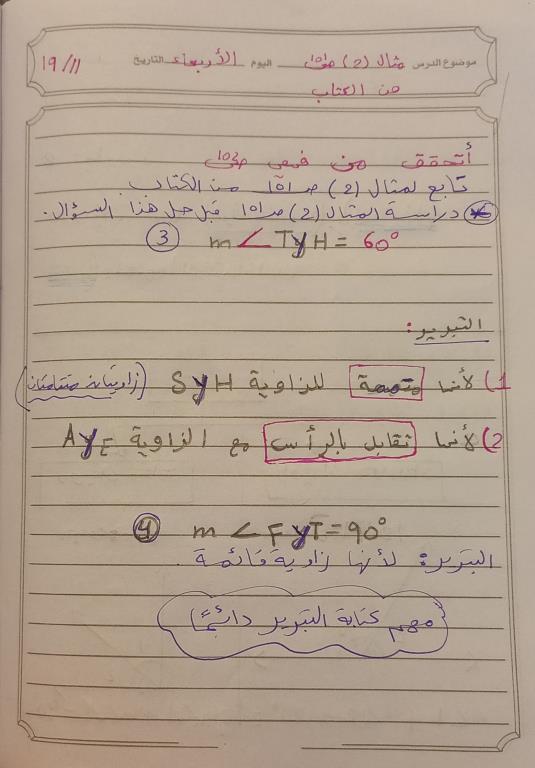 موضوع الدرس مثال (2) ص١٥١ اليوم الأربعاء التاريخ 19/11
من الكتاب
أتحقق من فهمي ص١٥٢
تابع لمثال (2) ص١٥١ من الكتاب
دراسة المثال (2) ص١٥١ قبل حل هذا السؤال.
3 m∠TyH = 60°
التبرير:
1) لأنها متممة للزاوية SyH (زاويتان متتامتان)
2) لأنها تقابل بالرأس مع الزاوية AyF
4 m∠FyT=90°
التبرير: لأنها زاوية قائمة.
مهم كتابة التبرير دائمًا